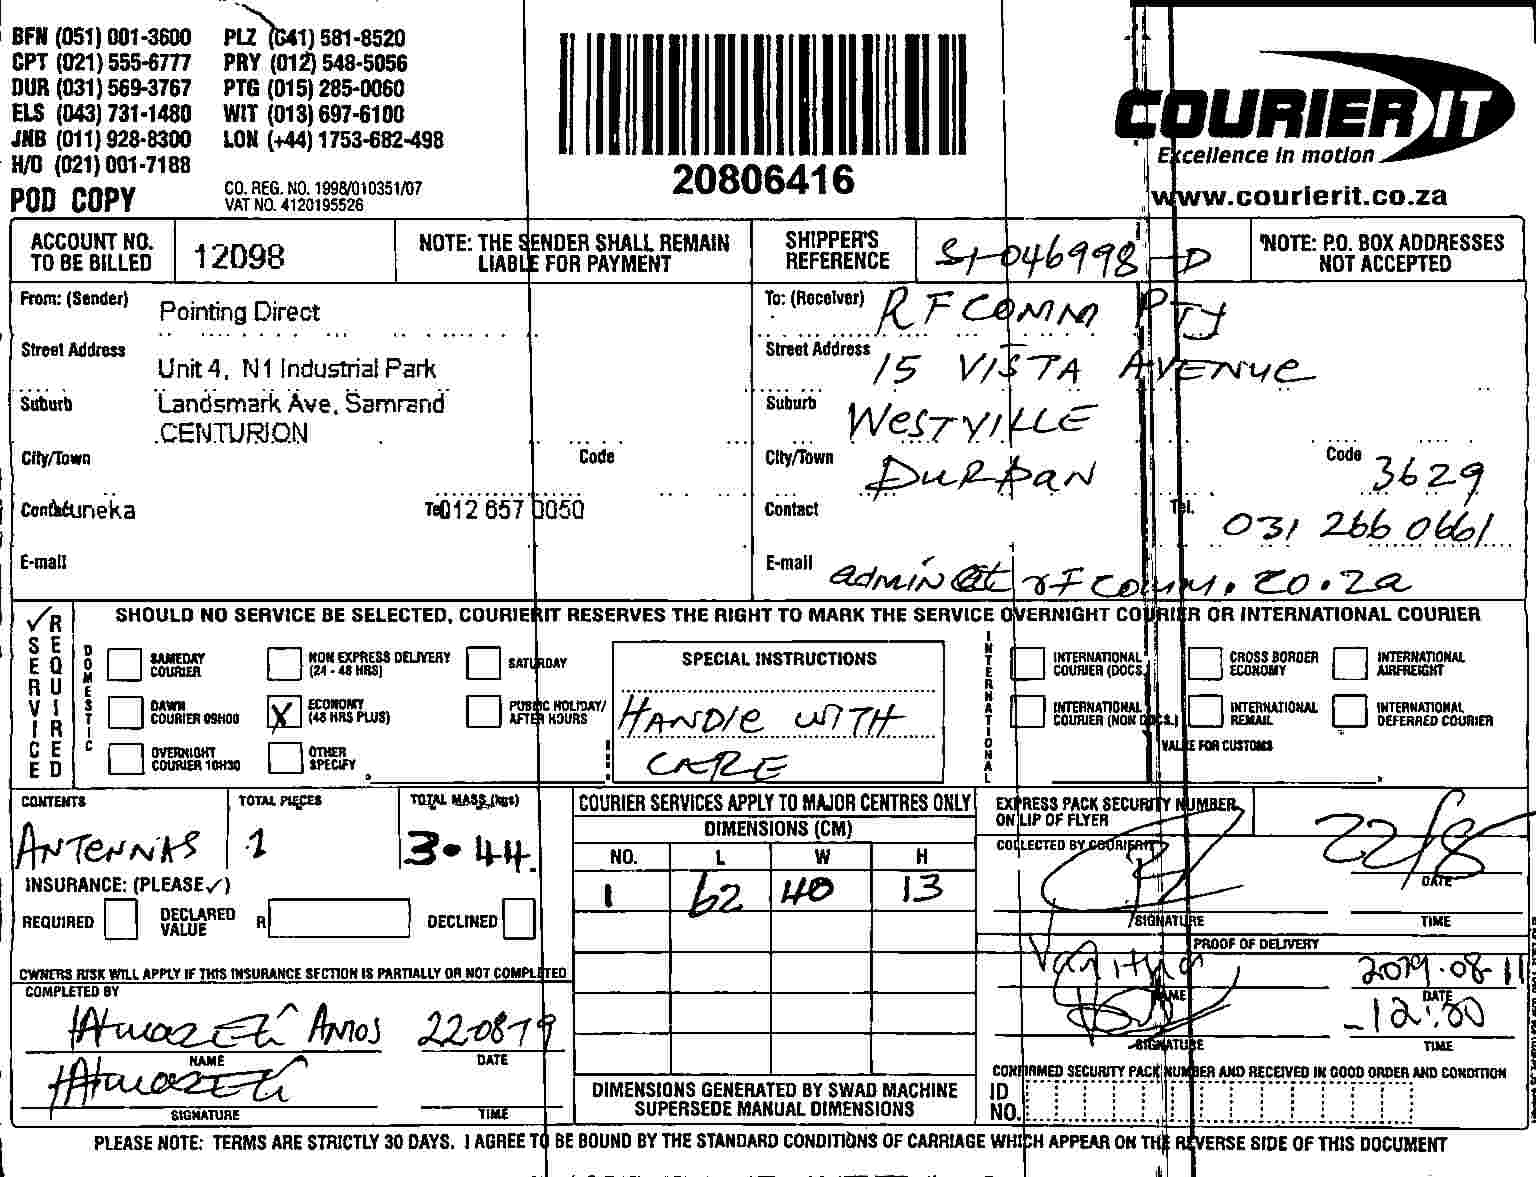 BFN (051) 001-3600 PLZ (041) 581-8520
CPT (021) 555-6777 PRY (012) 548-5056
DUR (031) 569-3767 PTG (015) 285-0060
ELS (043) 731-1480 WIT (013) 697-6100
JNB (011) 928-8300 LON (+44) 1753-682-498
H/O (021) 001-7188
POD COPY
CO. REG. NO. 1998/010351/07
VAT NO. 4120195526
20806416
COURIER IT
Excellence in motion
www.courierit.co.za
ACCOUNT NO. TO BE BILLED
12098
NOTE: THE SENDER SHALL REMAIN LIABLE FOR PAYMENT
SHIPPER'S REFERENCE
SI-046998-D
*NOTE: P.O. BOX ADDRESSES NOT ACCEPTED
From: (Sender) Pointing Direct
Street Address Unit 4, N1 Industrial Park
Suburb Landsmark Ave, Samrand
CENTURION
City/Town Code
Contact
Tel. 012 657 0050
E-mail
To: (Receiver) RFCOMM PTY
Street Address 15 VISTA AVENUE
Suburb WESTVILLE
City/Town DURBAN Code 3629
Contact Tel. 031 266 0661
E-mail admin@rfcomm.co.za
SERVICE REQUIRED
SHOULD NO SERVICE BE SELECTED, COURIERIT RESERVES THE RIGHT TO MARK THE SERVICE OVERNIGHT COURIER OR INTERNATIONAL COURIER
DOMESTIC
SAMEDAY COURIER
NON EXPRESS DELIVERY (24 - 48 HRS)
SATURDAY
DAWN COURIER 09H00
X ECONOMY (48 HRS PLUS)
PUBLIC HOLIDAY/ AFTER HOURS
OVERNIGHT COURIER 10H30
OTHER SPECIFY
SPECIAL INSTRUCTIONS
HANDLE WITH
CARE
INTERNATIONAL
INTERNATIONAL COURIER (DOCS.)
CROSS BORDER ECONOMY
INTERNATIONAL AIRFREIGHT
INTERNATIONAL COURIER (NON DOCS.)
INTERNATIONAL REMAIL
INTERNATIONAL DEFERRED COURIER
VALUE FOR CUSTOMS
CONTENTS TOTAL PIECES TOTAL MASS (kgs)
ANTENNAS 1 3.44
INSURANCE: (PLEASE ✓)
REQUIRED DECLARED VALUE R DECLINED
OWNERS RISK WILL APPLY IF THIS INSURANCE SECTION IS PARTIALLY OR NOT COMPLETED
COMPLETED BY
Amos 22-08-19
NAME DATE
SIGNATURE TIME
COURIER SERVICES APPLY TO MAJOR CENTRES ONLY
DIMENSIONS (CM)
NO. L W H
1 62 40 13
DIMENSIONS GENERATED BY SWAD MACHINE
SUPERSEDE MANUAL DIMENSIONS
EXPRESS PACK SECURITY NUMBER
ON LIP OF FLYER
COLLECTED BY COURIERIT
22/8
DATE
SIGNATURE TIME
PROOF OF DELIVERY
2019.08.11
NAME DATE
SIGNATURE TIME
CONFIRMED SECURITY PACK NUMBER AND RECEIVED IN GOOD ORDER AND CONDITION
ID NO.
PLEASE NOTE: TERMS ARE STRICTLY 30 DAYS. I AGREE TO BE BOUND BY THE STANDARD CONDITIONS OF CARRIAGE WHICH APPEAR ON THE REVERSE SIDE OF THIS DOCUMENT